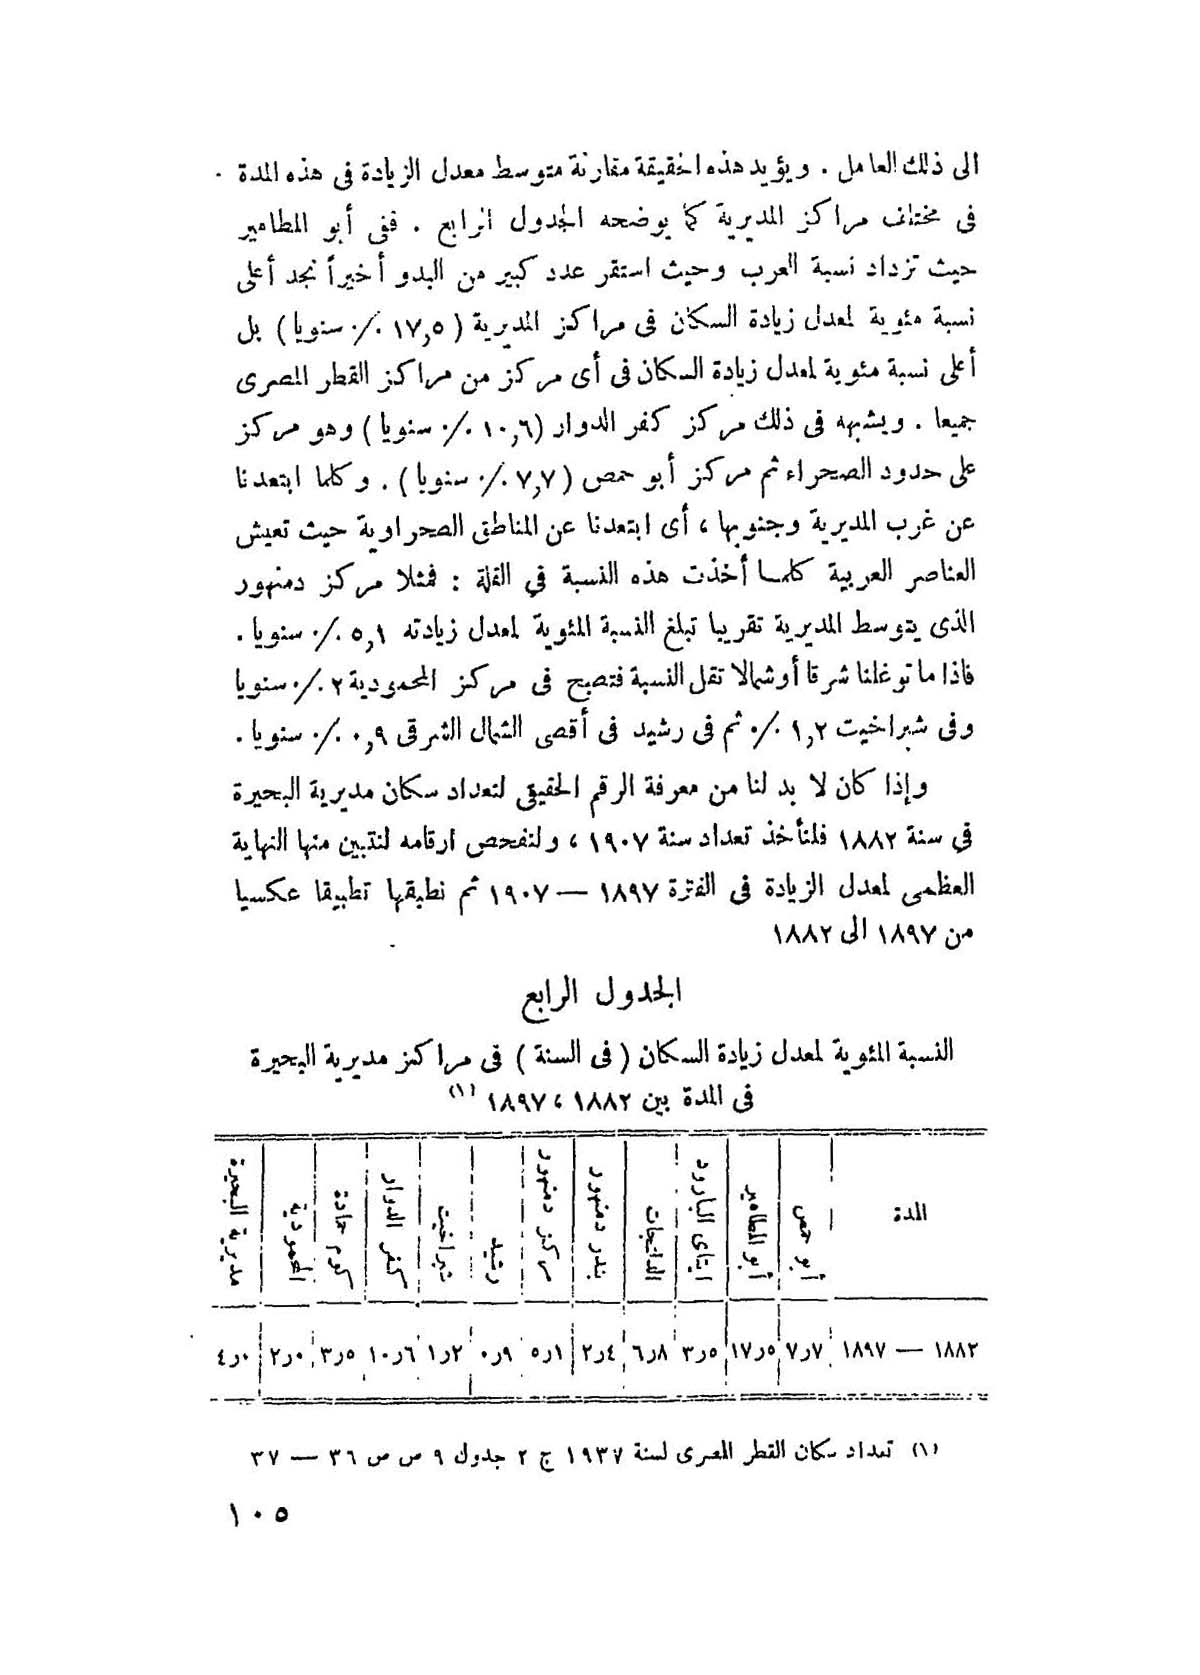 الى ذلك العامل . ويؤيد هذه الحقيقة مقارنة متوسط معدل الزيادة فى هذه المدة
فى مختلف مراكز المديرية كما يوضحه الجدول الرابع . ففى أبو المطامير
حيث تزداد نسبة العرب وحيث استقر عدد كبير من البدو أخيراً نجد أعلى
نسبة مئوية لمعدل زيادة السكان فى مراكز المديرية ( ١٧,٥ ٪ سنويا ) بل
أعلى نسبة مئوية لمعدل زيادة السكان فى أى مركز من مراكز القطر المصرى
جميعا . ويشبهه فى ذلك مركز كفر الدوار (١٠,٦ ٪ سنويا ) وهو مركز
على حدود الصحراء ثم مركز أبو حمص ( ٧,٧ ٪ سنويا ) . وكلما ابتعدنا
عن غرب المديرية وجنوبها ، أى ابتعدنا عن المناطق الصحراوية حيث تعيش
العناصر العربية كلما أخذت هذه النسبة في القلة : فمثلا مركز دمنهور
الذى يتوسط المديرية تقريبا تبلغ النسبة المئوية لمعدل زيادته ٥,١ ٪ سنويا .
فاذا ما توغلنا شرقا أو شمالا تقل النسبة فتصبح فى مركز المحمودية ٢ ٪ سنويا
وفى شبراخيت ١,٢ ٪ ثم فى رشيد فى أقصى الشمال الشرقى ٠,٩ ٪ سنويا .
وإذا كان لا بد لنا من معرفة الرقم الحقيقى لتعداد سكان مديرية البحيرة
في سنة ١٨٨٢ فلنأخذ تعداد سنة ١٩٠٧ ، ولنفحص ارقامه لنتبين منها النهاية
العظمى لمعدل الزيادة فى الفترة ١٨٩٧ — ١٩٠٧ ثم نطبقها تطبيقا عكسيا
من ١٨٩٧ الى ١٨٨٢
الجدول الرابع
النسبة المئوية لمعدل زيادة السكان ( فى السنة ) فى مراكز مديرية البحيرة
فى المدة بين ١٨٨٢ ، ١٨٩٧ (١)
المدة
أبو حمص
أبو المطامير
ايتاى البارود
الدلنجات
بندر دمنهور
مركز دمنهور
رشيد
شبراخيت
كفر الدوار
كوم حمادة
المحمودية
مديرية البحيرة
١٨٨٢ — ١٨٩٧ ٧ر٧ ٥ر١٧ ٥ر٣ ٨ر٦ ٤ر٢ ١ر٥ ٩ر٠ ٢ر١ ٦ر١٠ ٥ر٣ ٠ر٢ ٠ر٤
(١) تعداد سكان القطر المصرى لسنة ١٩٣٧ ج ٢ جدول ٩ ص ص ٣٦ — ٣٧
١٠٥